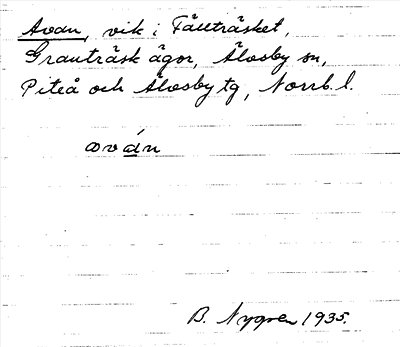 Avan, vik i Fällträsket,
Granträsk ägor, Älvsby sn,
Piteå och Älvsby tg, Norrb. l.
aván
B. Nygren 1935.